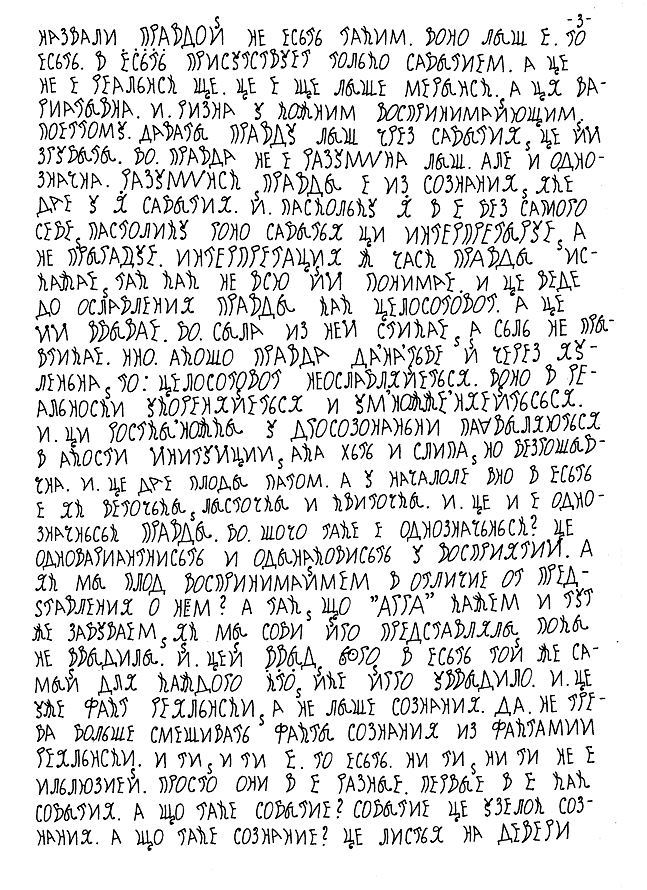 -3-
НАЗВАЛИ ПРАВДОЙ НЕ ЕСЬТЬ ТАКИМ. ВОНО ЛЫШ Е. ТО
ЕСЬТЬ. В ЁСЁТЬ ПРИСУТСТВУЕТ ТОЛЬКО САБЫТИЕМ. А ЦЕ
НЕ Е РЕАЛЬНСК ЩЕ. ЦЕ Е ЩЕ ЛЫШЕ МЕРЫНСК. А ЦЯ ВА-
РИАТЫВНА. И. РИЗНА У КОЖНИМ ВОСПРИНИМАЙЮЩИМ.
ПОЕТТОМУ. ДАВАТЫ ПРАВДУ ЛЫШ ЧРЕЗ САБЫТИЯ, ЦЕ ЙИ
ЗГУБЫТЫ. БО. ПРАВДА НЕ Е РАЗУМНА ЛЫШ. АЛЕ И ОДНО-
ЗНАЧНА. РАЗУМНСК, ПРАВДЫ Е ИЗ СОЗНАНИЯ, ЯКЕ
ДРЕ У Я САБЫТИЯ. Й. ПАСКОЛЬКУ Я В Е БЕЗ САМОГО
СЕБЕ, ПАСТОЛИКУ ТОНО САБЫТЬЯ ЦИ ИНТЕРПРЕТЫРУЕ, А
НЕ ПРЫГАДУЕ. ИНТЕРПРЕТАЦИЯ Ж ЧАСК ПРАВДЫ ИС-
КАЖАЕ, ТАК КАК НЕ ВСЮ ЙИ ПОНИМАЕ. И ЦЕ ВЕДЕ
ДО ОСЛАБЛЕНИЯ ПРАВДЫ КАК ЦЕЛОСОТОВОТ. А ЦЕ
ЙИ ВБЫВАЕ. БО. СЫЛА ИЗ НЕЙ СТИКАЕ, А СЫЛЬ НЕ ПРЫ-
ВТИКАЕ. ННО. АКОШО ПРАВДА ДА'НА'ТЬВЕ Й ЧЕРЕЗ ЯУ-
ЛЕНЬНА, ТО: ЦЕЛОСОТОВОТ НЕОСЛАБЛЯЙЕТЬСЯ. ВОНО В РЕ-
АЛЬНОСКИ УКОРЕНЯЙЕТЬСЯ И УМ'НОЖЖЕ'НЯЕЙТЬСЬСЯ.
И. ЦИ РОСТКЫ'НОЖКЫ У ДГОСОЗОНАНЬНИ ПАЯВЫЛЯЮТЬСЯ
В АКОСТИ ИНИТУИЦИИ, АКА ХЫТЬ И СЛИПА, НО БЕЗГОШЫБ-
ЧНА. И. ЦЕ ДРЕ ПЛОДЫ ПАТОМ. А У НАЧАЛОЛЕ ВНО В ЕСЬТЬ
Е ЯК ВЕТОЧЬКЫ, ЛАСТОЧКЫ И КВИТОЧКЫ. И. ЦЕ И Е ОДНО-
ЗНАЧНЬСЬК ПРАВДЫ. БО. ШОЧО ТАКЕ Е ОДНОЗНАЧЬНЬСК? ЦЕ
ОДНОВАРИАНТНИСЬТЬ И ОДЫНАКОВИСЬТЬ У ВОСПРИЯТИЙ. А
ЯК МЫ ПЛОД ВОСПРИНИМАЙМЕМ В ОТЛИЧИЕ ОТ ПРЕД-
SТАВЛЕНИЯ О НЕМ? А ТАК, ЩО "АГГА" КАЖЕМ И ТУТ
ЖЕ ЗАБУВАЕМ, ЯК МЫ СОБИ ЙГО ПРЕДСТАВЛЯЛЫ, ПОКЫ
НЕ ВВЫДИЛЫ. Й. ЦЕЙ ВВЫД, ЙОГО, В ЕСЬТЬ ТОЙ ЖЕ СА-
МЫЙ ДЛЯ КАЖДОГО КТО, ЙКЕ ЙГГО УВВЫДИЛО. И. ЦЕ
УЖЕ ФАКТ РЕЯЛЬНСКИ, А НЕ ЛЫШЕ СОЗНАНИЯ. ДА. НЕ ТРЕ-
БА БОЛЬШЕ СМЕШИВАТЬ ФАКТЫ СОЗНАНИЯ ИЗ ФАКТАМИИ
РЕЯЛЬНСКИ. И ТИ, И ТИ Е. ТО ЕСЬТЬ. НИ ТИ, НИ ТИ НЕ Е
ИЛЬЛЮЗИЕЙ. ПРОСТО ОНИ В Е РАЗНЫЕ. ПЕРВЫЕ В Е КАК
СОБЫТИЯ. А ЩО ТАКЕ СОБЫТИЕ? СОБЫТИЕ ЦЕ УЗЕЛОК СОЗ-
НАНИЯ. А ЩО ТАКЕ СОЗНАНИЕ? ЦЕ ЛИСТЬЯ НА ДЕВЕРИ